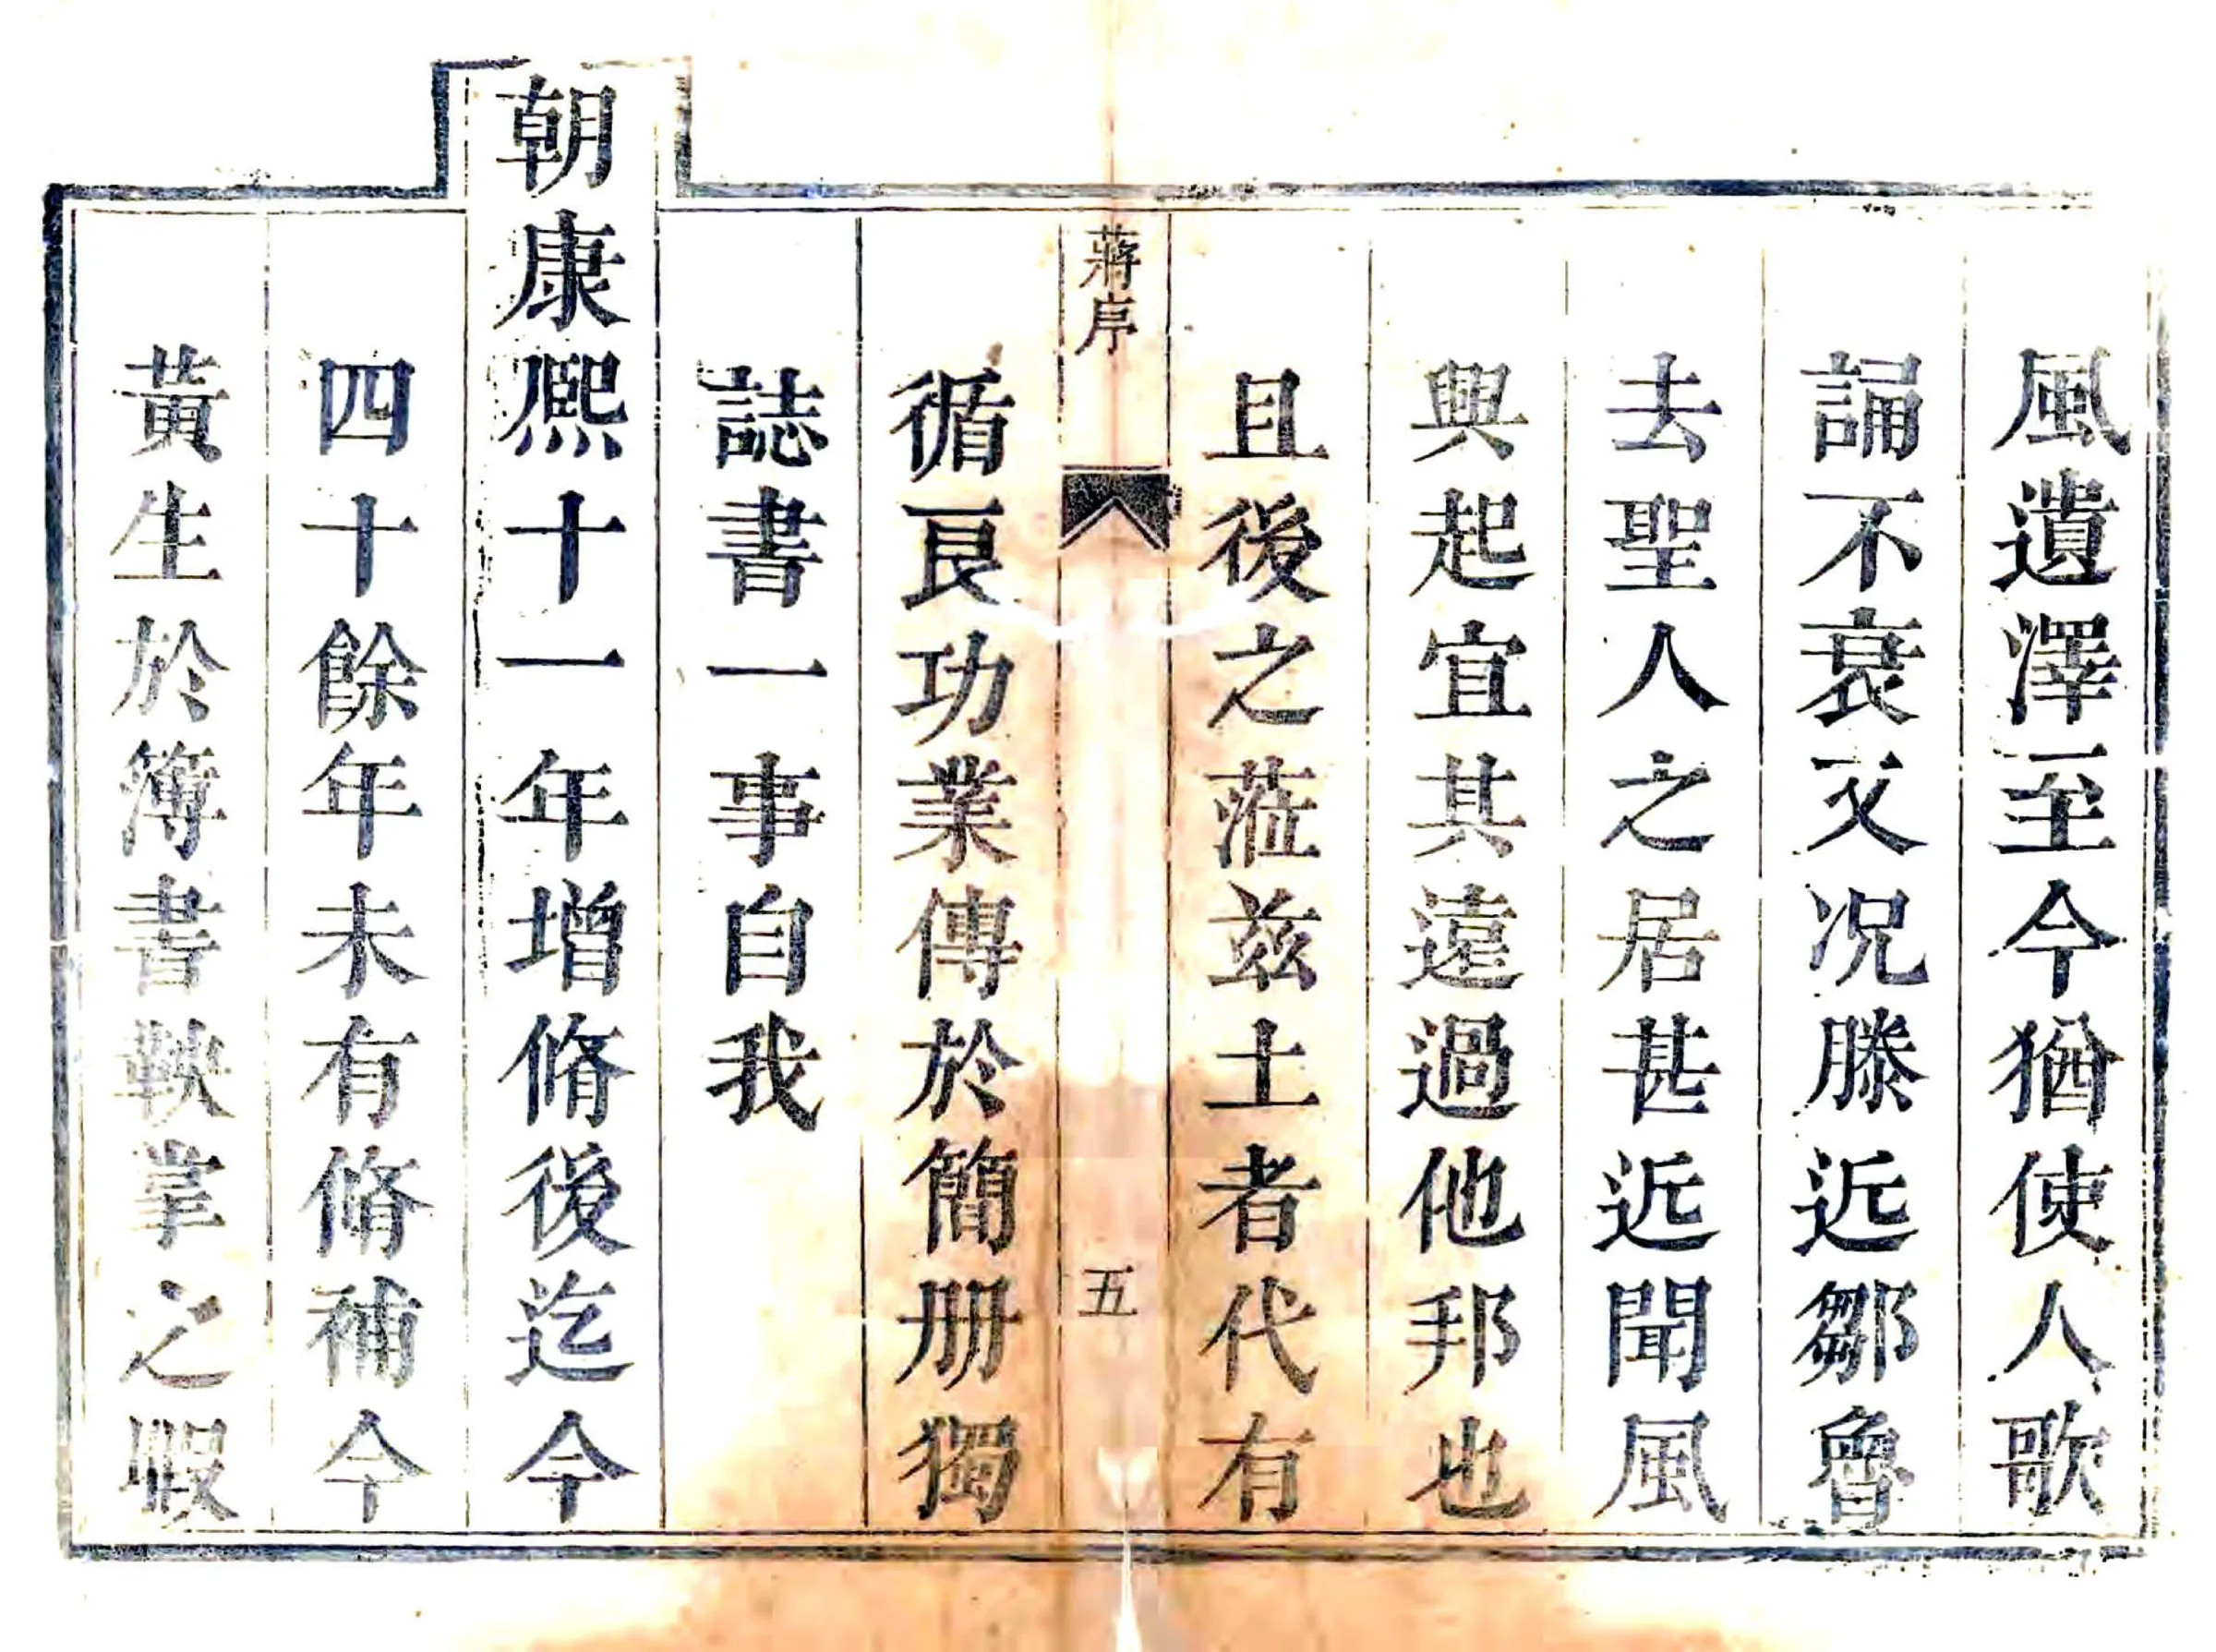 風遺澤至今猶使人歌
誦不衰又况滕近鄒魯
去聖人之居甚近聞風
興起宜其遠過他邦也
且後之蒞茲土者代有
蔣序
五
循良功業傳於簡册獨
誌書一事自我
朝康熙十一年增脩後迄今
四十餘年未有脩補今
黃生於簿書鞅掌之暇